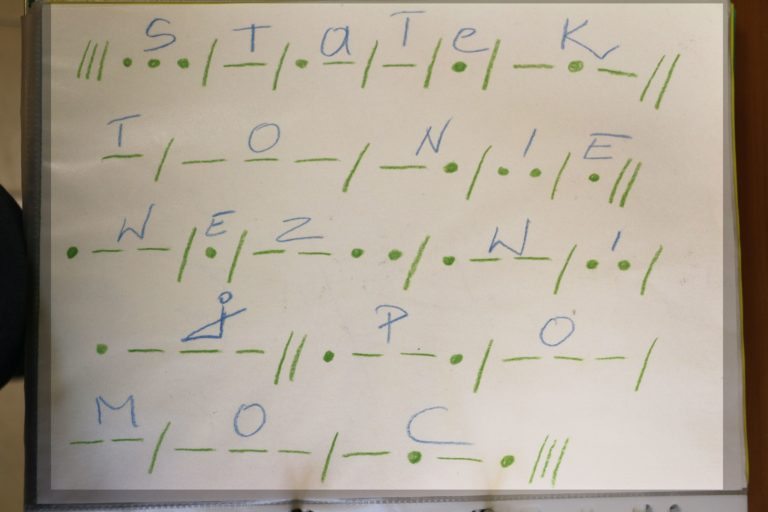 S T a T e K
///•••/—/•—/—/•/—•—//
T O N I E
—/———/—•/••/•//
W E Z W I
•——/•/——••/•——/••/
J P O
•———//•——•/———/
M O C
——/———/—•—•///